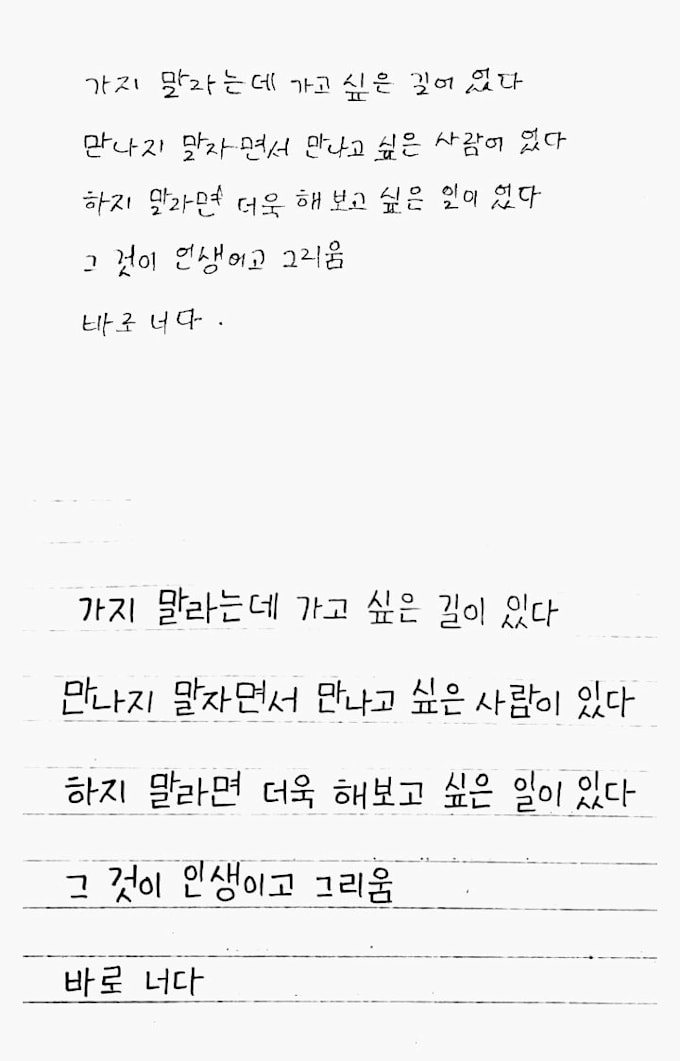 가지 말라는데 가고 싶은 길이 있다
만나지 말자면서 만나고 싶은 사람이 있다
하지 말라면 더욱 해보고 싶은 일이 있다
그 것이 인생이고 그리움
바로 너다.
가지 말라는데 가고 싶은 길이 있다
만나지 말자면서 만나고 싶은 사람이 있다
하지 말라면 더욱 해보고 싶은 일이 있다
그 것이 인생이고 그리움
바로 너다